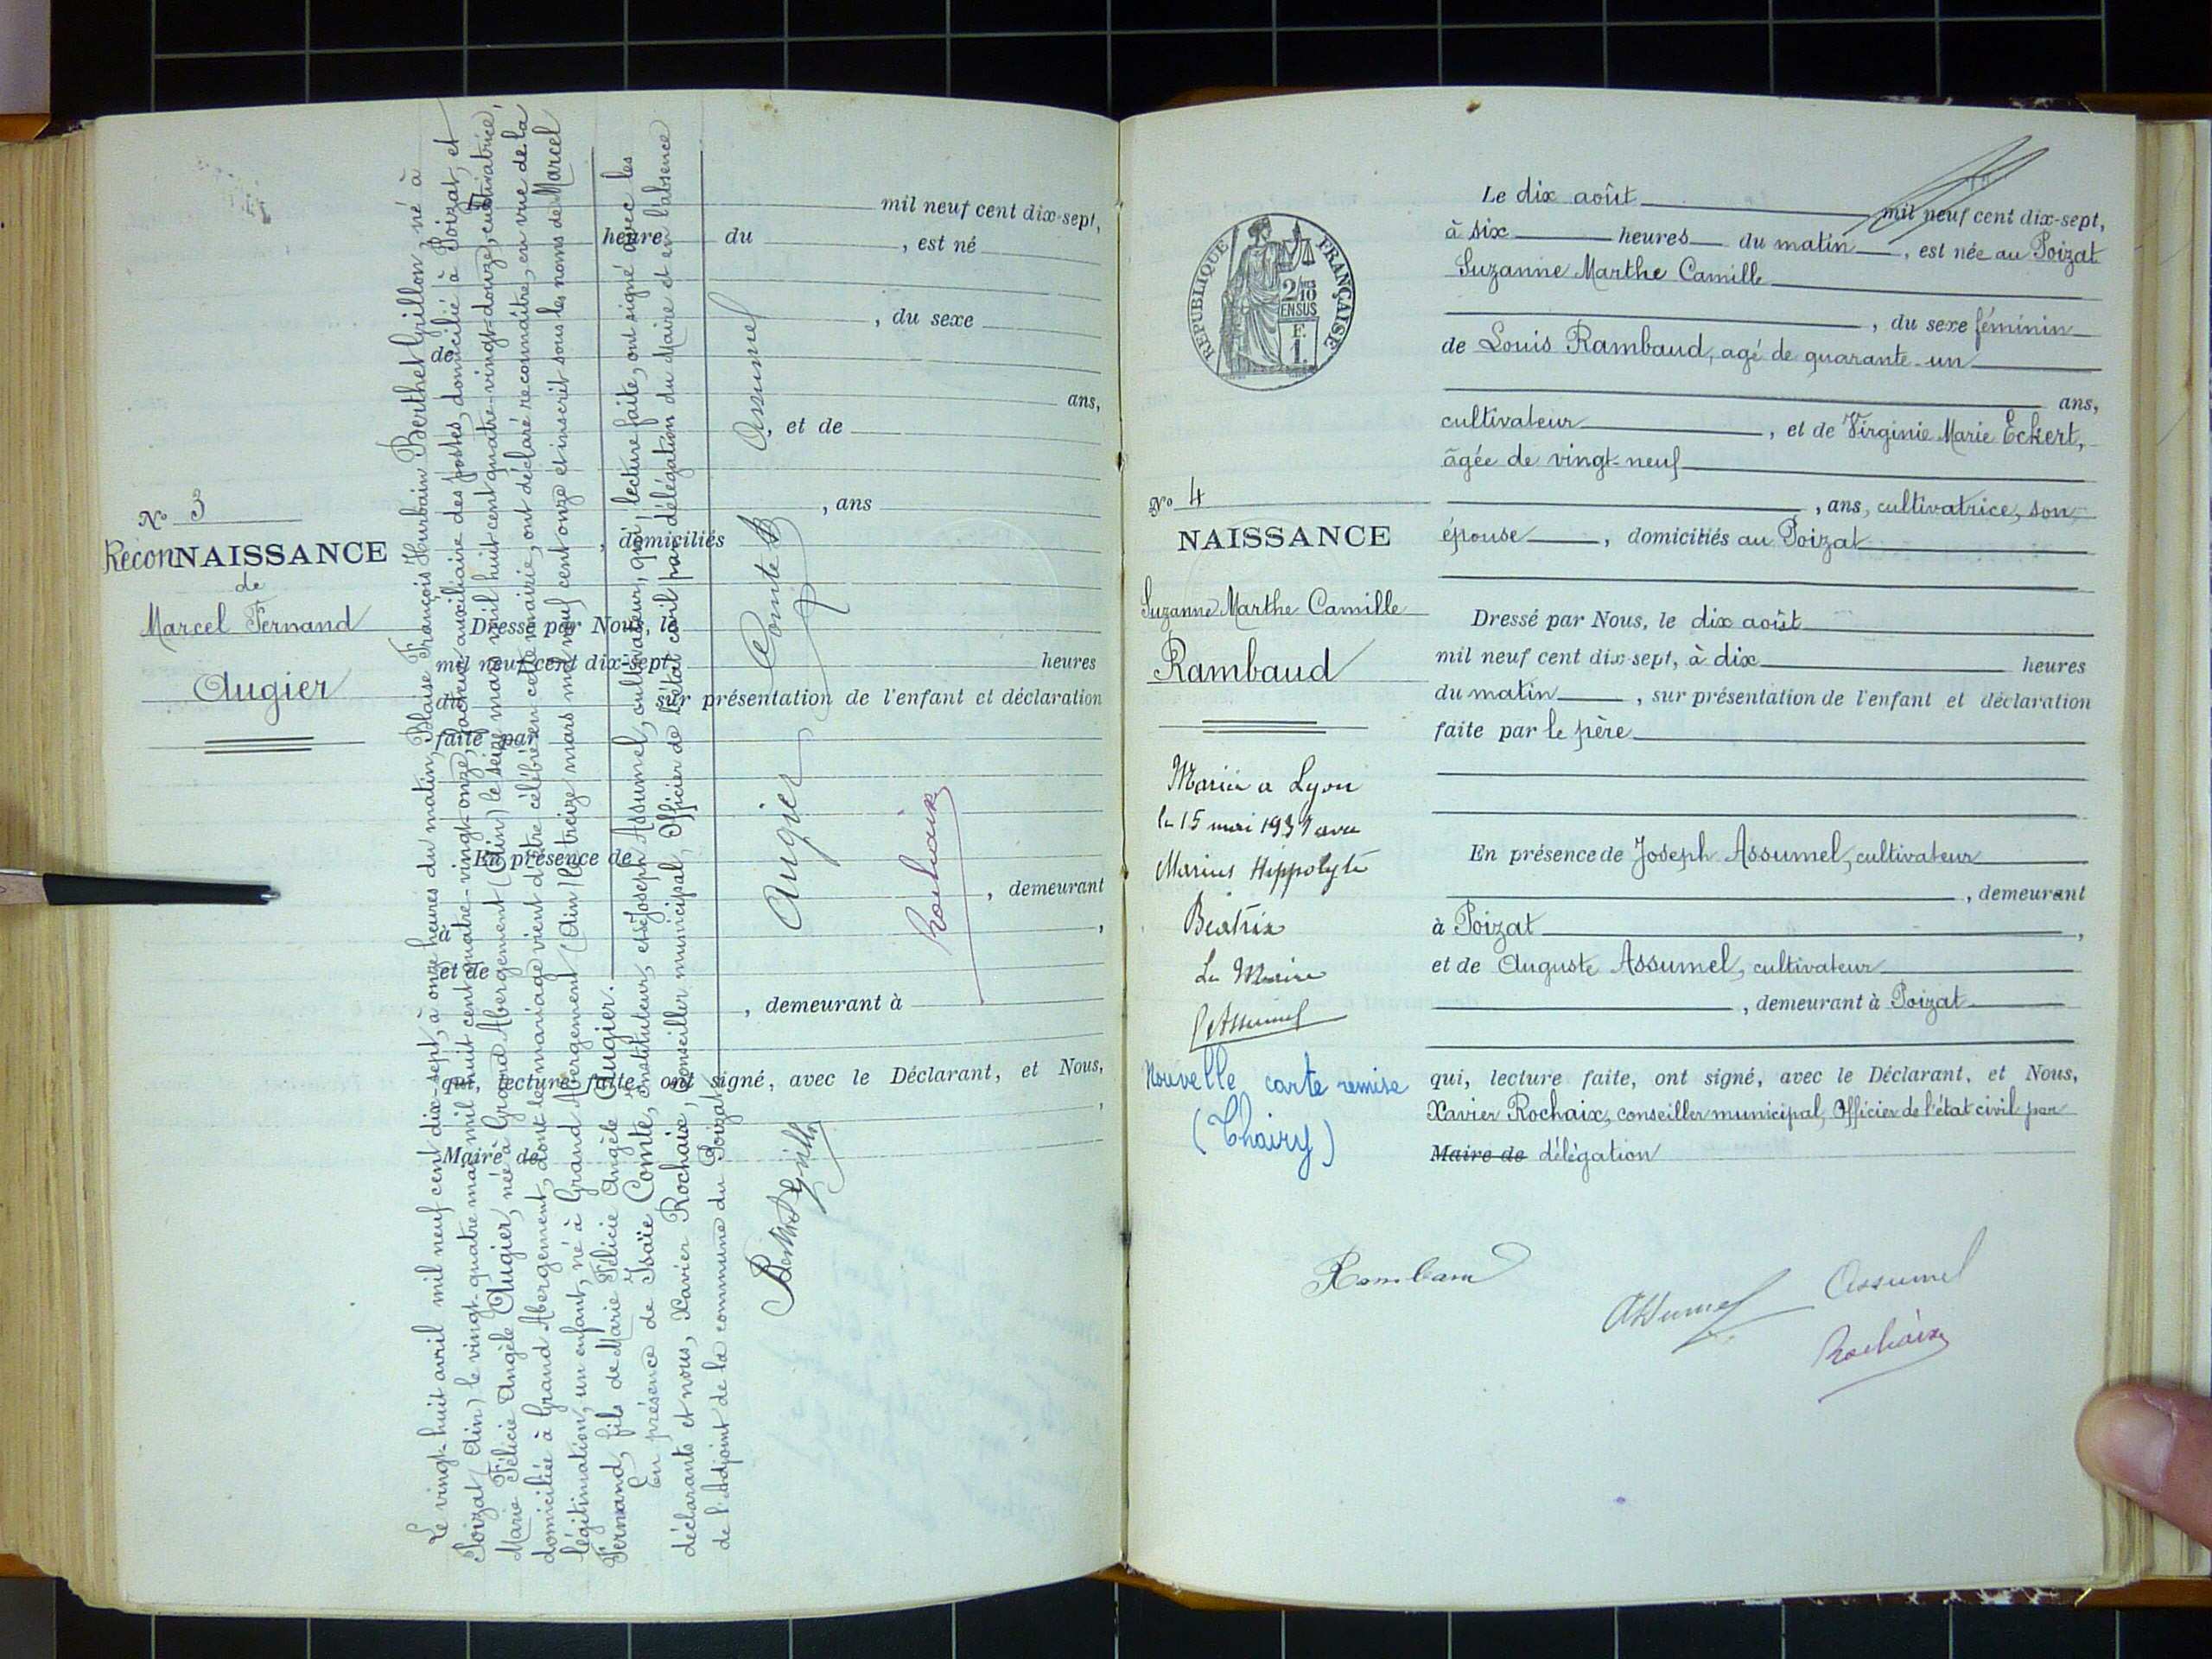 N° 3
ReconNAISSANCE
de
Marcel Fernand
Augier
Le vingt-huit avril mil neuf cent dix-sept, à onze heures du matin, Blaise François Hurbain Berthet Grillon, né à
Poizat (Ain) le vingt-quatre mai mil huit cent quatre-vingt-onze, facteur auxiliaire des postes, domicilié à Poizat, et
Marie Félicie Angèle Augier, née à Grand Abergement (Ain) le seize mars mil huit cent quatre-vingt-douze, cultivatrice,
domiciliée à Grand Abergement, dont le mariage vient d'être célébré en cette mairie, ont déclaré reconnaître, en vue de la
légitimation, un enfant, né à Grand Abergement (Ain) le treize mars mil neuf cent onze et inscrit sous les noms de Marcel
Fernand, fils de Marie Félicie Angèle Augier.
En présence de Isaïe Comte, instituteur, et de Joseph Assumel, cultivateur, qui, lecture faite, ont signé avec les
déclarants et nous, Xavier Rochaix, conseiller municipal, Officier de l'état civil par délégation du Maire et en l'absence
de l'Adjoint de la commune du Poizat.
Berthet Grillon
Augier
Comte
Assumel
Rochaix
mil neuf cent dix-sept,
heure du , est né
, du sexe
de
ans,
, et de
, ans
, domiciliés
Dressé par Nous, le
mil neuf cent dix-sept, heures
du sur présentation de l'enfant et déclaration
faite par
En présence de
, demeurant
à ,
et de
, demeurant à
qui, lecture faite, ont signé, avec le Déclarant, et Nous,
,
Maire de
REPUBLIQUE FRANÇAISE
2/10
EN SUS
F.
1.
N° 4
NAISSANCE
Suzanne Marthe Camille
Rambaud
Mariée a Lyon
le 15 mai 1937 avec
Marius Hippolyte
Beatrix
Le Maire
Assumel
Nouvelle carte remise
(Thoiry)
Le dix août mil neuf cent dix-sept,
à six heures du matin , est née au Poizat
Suzanne Marthe Camille
, du sexe féminin
de Louis Rambaud, agé de quarante-un
ans,
cultivateur , et de Virginie Marie Eckert,
âgée de vingt-neuf
, ans, cultivatrice, son
épouse , domiciliés au Poizat
Dressé par Nous, le dix août
mil neuf cent dix-sept, à dix heures
du matin , sur présentation de l'enfant et déclaration
faite par le père
En présence de Joseph Assumel, cultivateur
, demeurant
à Poizat ,
et de Auguste Assumel, cultivateur
, demeurant à Poizat
qui, lecture faite, ont signé, avec le Déclarant, et Nous,
Xavier Rochaix, conseiller municipal, Officier de l'état civil par
Maire de délégation
Rambaud
Assumel
Assumel
Rochaix